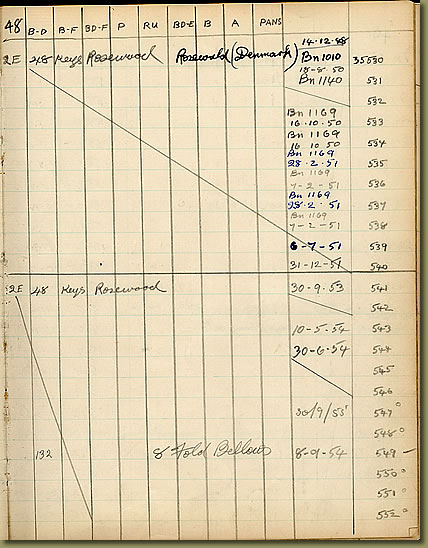 48 B-D B-F BD-F P RU BD-E B A PANS
14-12-88
2E 48 Keys Rosewood Rosewald (Denmark) Bn1010 35530
18-8-50
Bn 1140 531
532
Bn 1169
16-10-50 533
Bn 1169
16 10 50 534
Bn 1169
28-2-51 535
Bn 1169
7-2-51 536
Bn 1169
28.2.51 537
Bn 1169
7-2-51 538
6-7-51 539
31-12-51 540
2E 48 Keys Rosewood 30-9-53 541
542
10-5-54 543
30-6-54 544
545
546
30/9/55 547
548
132 8 Fold Bellows 8-9-54 549
550
551
552